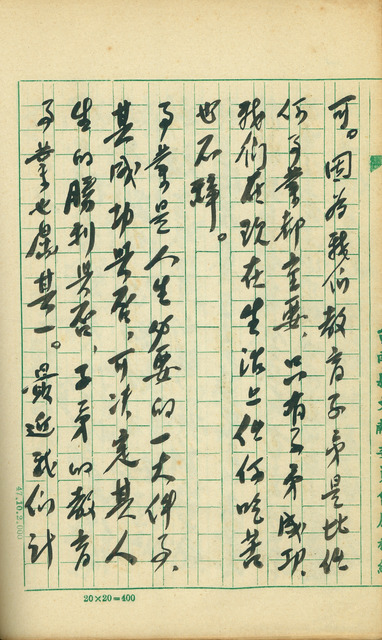 可。因為我们教育子弟是比任
何事業都重要、只有子弟成功、
我们在现在生活上任何吃苦
也不辞。
事業是人生必要的一大件事、
其成功與否、可决定其人
生的勝利與否、子弟的教育
事業也屬其一。最近我们計
20×20=400
47.10.2,000